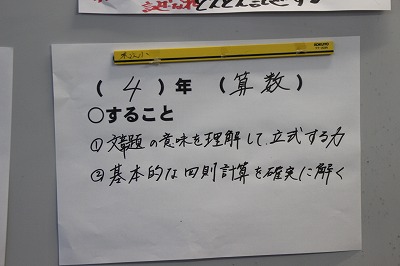 (4)年 (算数)
○すること
①文章題の意味を理解して、立式する力
②基本的な四則計算を確実に解く